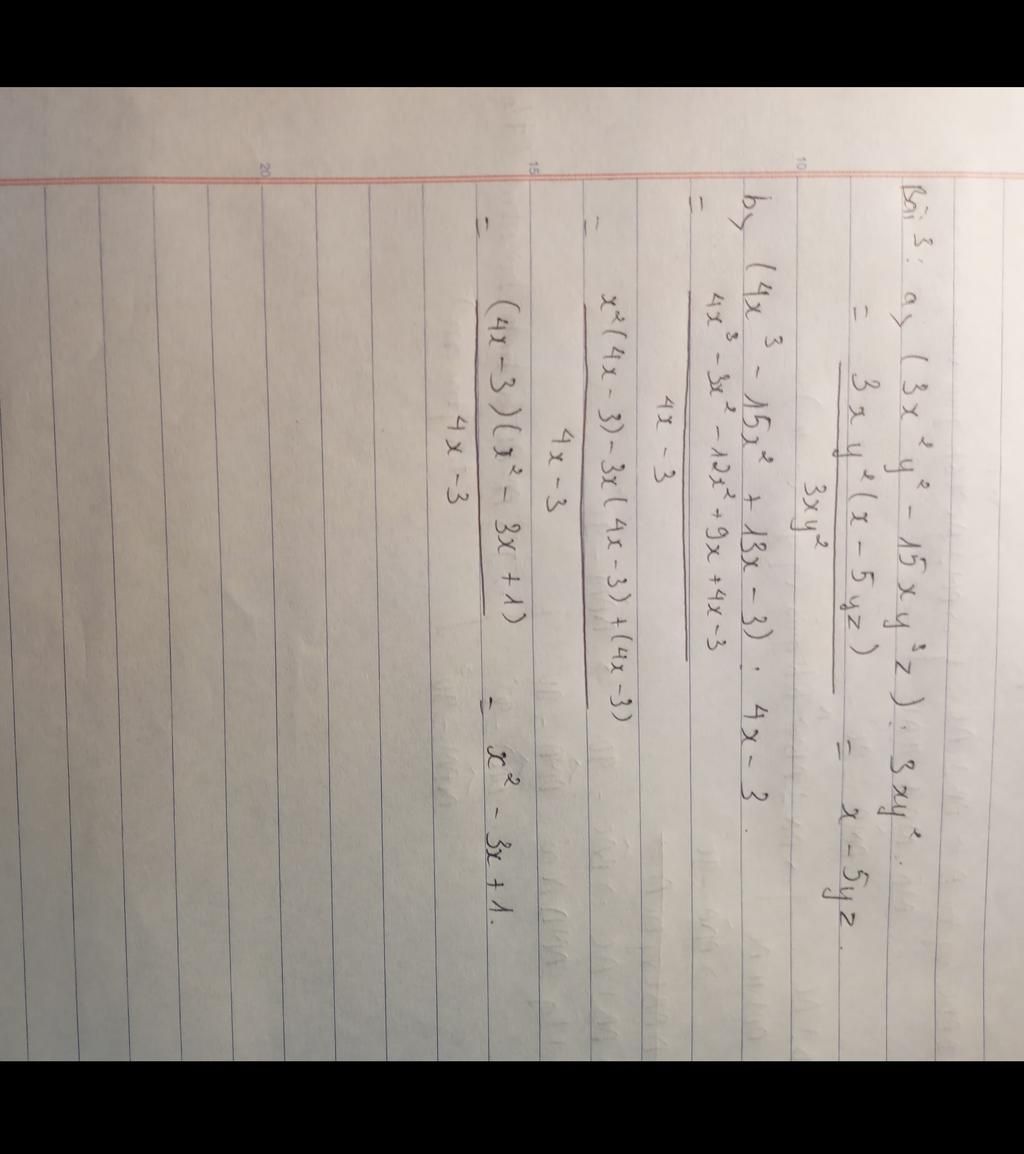 Bài 3: a, (3x²y² - 15xy³z) : 3xy².
= 3xy²(x - 5yz) / 3xy² = x - 5yz.
10
b, (4x³ - 15x² + 13x - 3) : 4x - 3.
= 4x³ - 3x² - 12x² + 9x + 4x - 3 / 4x - 3
= x²(4x - 3) - 3x(4x - 3) + (4x - 3) / 4x - 3
15
= (4x - 3)(x² - 3x + 1) / 4x - 3 = x² - 3x + 1.
20